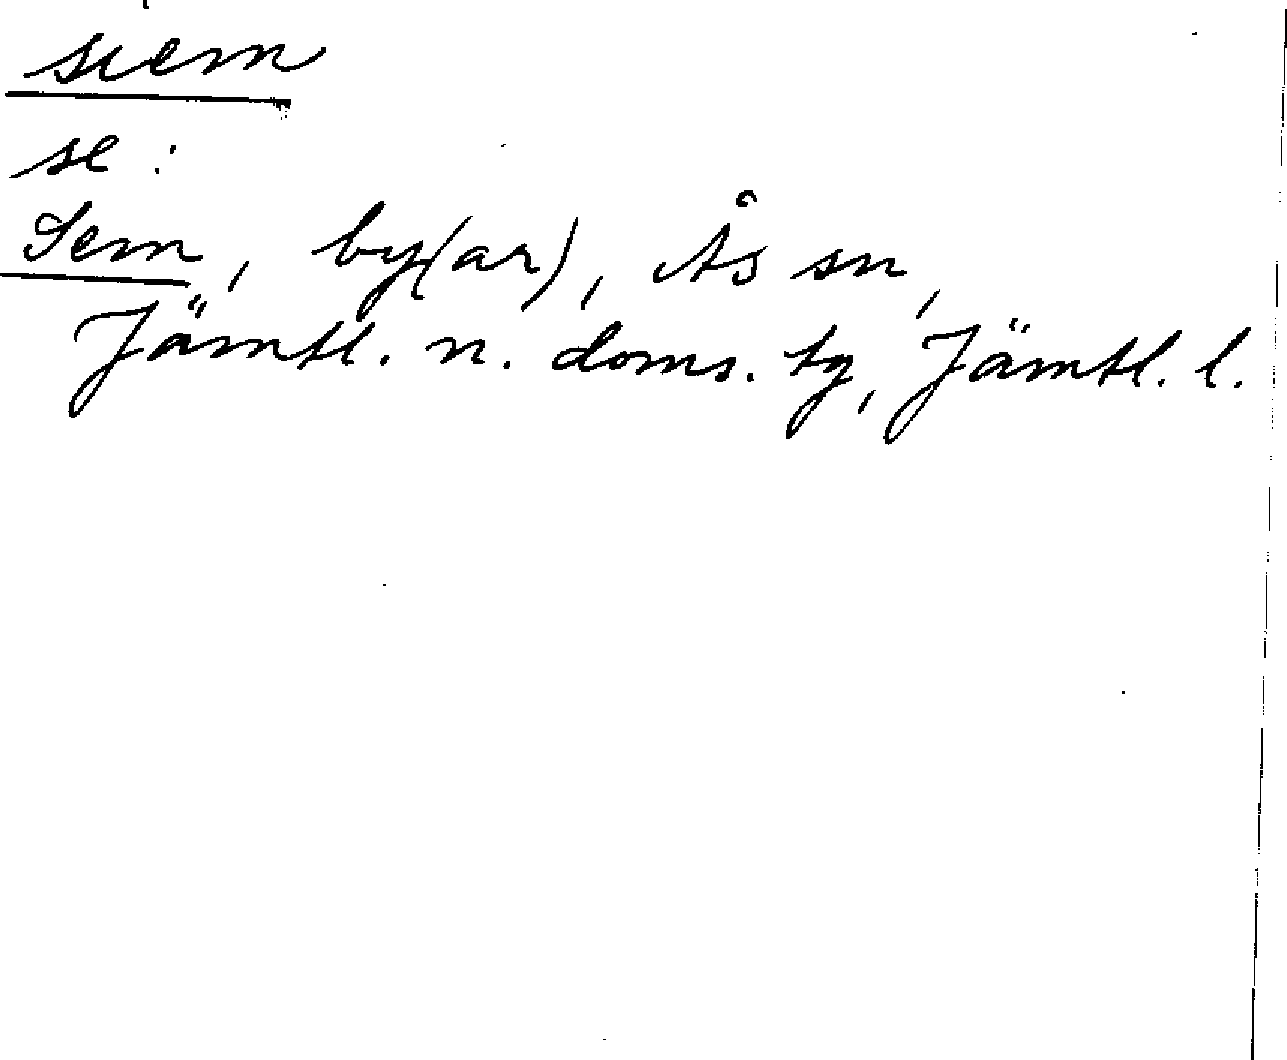 siem
se:
Sem, by(ar), Ås sn,
Jämtl. n. doms. tg, Jämtl. l.